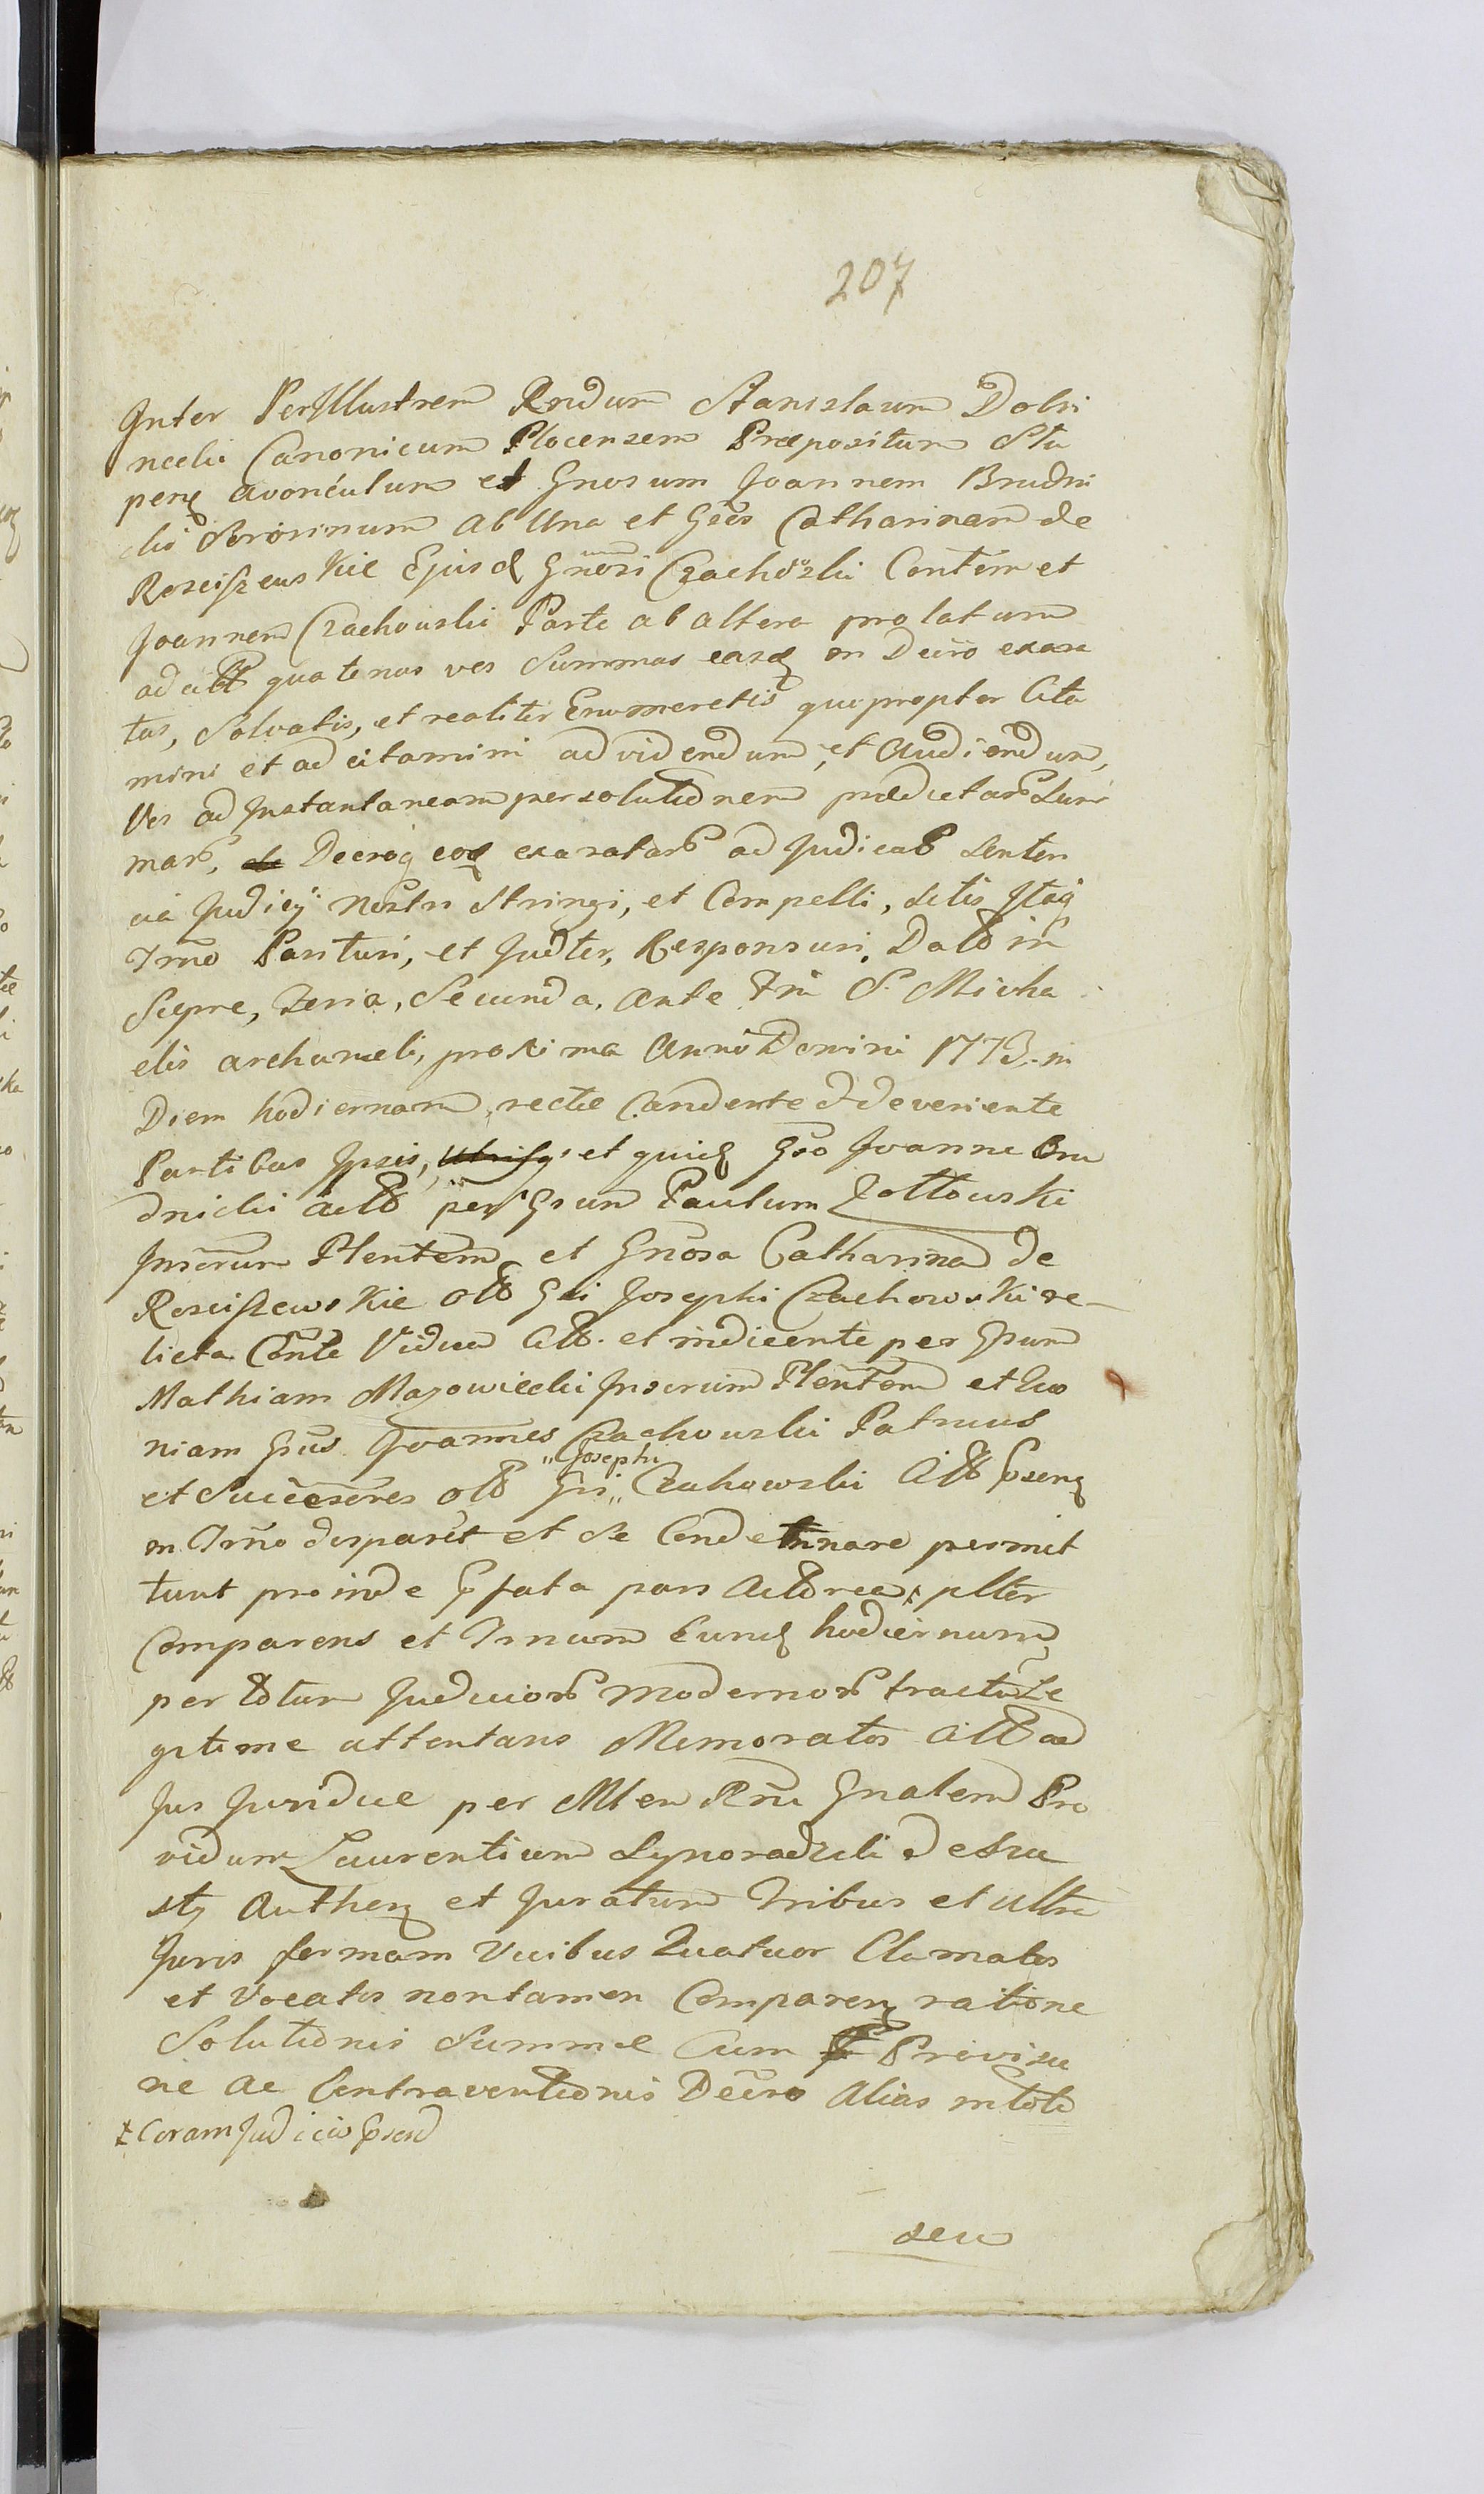 207
Inter Perillustrem Rndum Stanislaum Dobri
necki Canonicum Plocensem Præpositum Stu
penq avonculum et Gnosum Joannem Brudni
cki Sororinum ab Una et Gsos Catharinam de
Rosciszewskie Ejusd Gnosi Czachowski Contem et
Joannem Czachouski Parte ab altera prolatum
ad quatenus vos Summas easq in Decro exara
tas, Solvatis, et realiter Enumeretis quapropter Cita
mini et ad citamini ad videndum, et Audiendum,
Vos ad Instantaneam persolutionem prædictar Sum
mar, Decroq eod exaratar ad Judicat Senten
via Judicij Nostri Stringi, et Compelli, Sitis Itaq
Trno Parituri, et Judter, Responsuri. Dat in
Sieprc, Feria, Secunda, Ante Fm S. Micha
elis archanieli, proxima Anno Domini 1773. in
Diem hodiernam, recte Candente & deveniente
Partibus Ipsis, et quid Gso Joanne Bru
dnicki act per Gsum Paulum Zottowski
Inserum Plentem et Gnosa Catharina de
Rosciszewskie olt Gsi Josephi Czachowski re-
licta Conte Vidua Citt. et indicente per Gsum
Mathiam Mazowiecki Inserum Plentem et Quo
niam Gsus Joannes Czachouski Patruus
et Successores olt Gsi „Josephi„ Czahowski Citt
in Trno disparet et se Condemnare permit
tunt proinde fata pars Actorea ‡ pltter
Comparens et Trnum Eund hodiernum
per totum Judicior modernor tractu Le
gitime attentans Memoratos Citt ad
Jus Juridice per Mlen Rni Gnalem Pro
vidum Laurentium Lynoradzki de
Authen et Juratum Tribus et ultra
Juris formam Vicibus Quatuor Clamatos
et Vocatos non tamen Comparen ratione
Solutionis Summæ Cum Provisio
ne ac Contraventionis Decro Alias in toto
‡ Coram Judiciis
seu